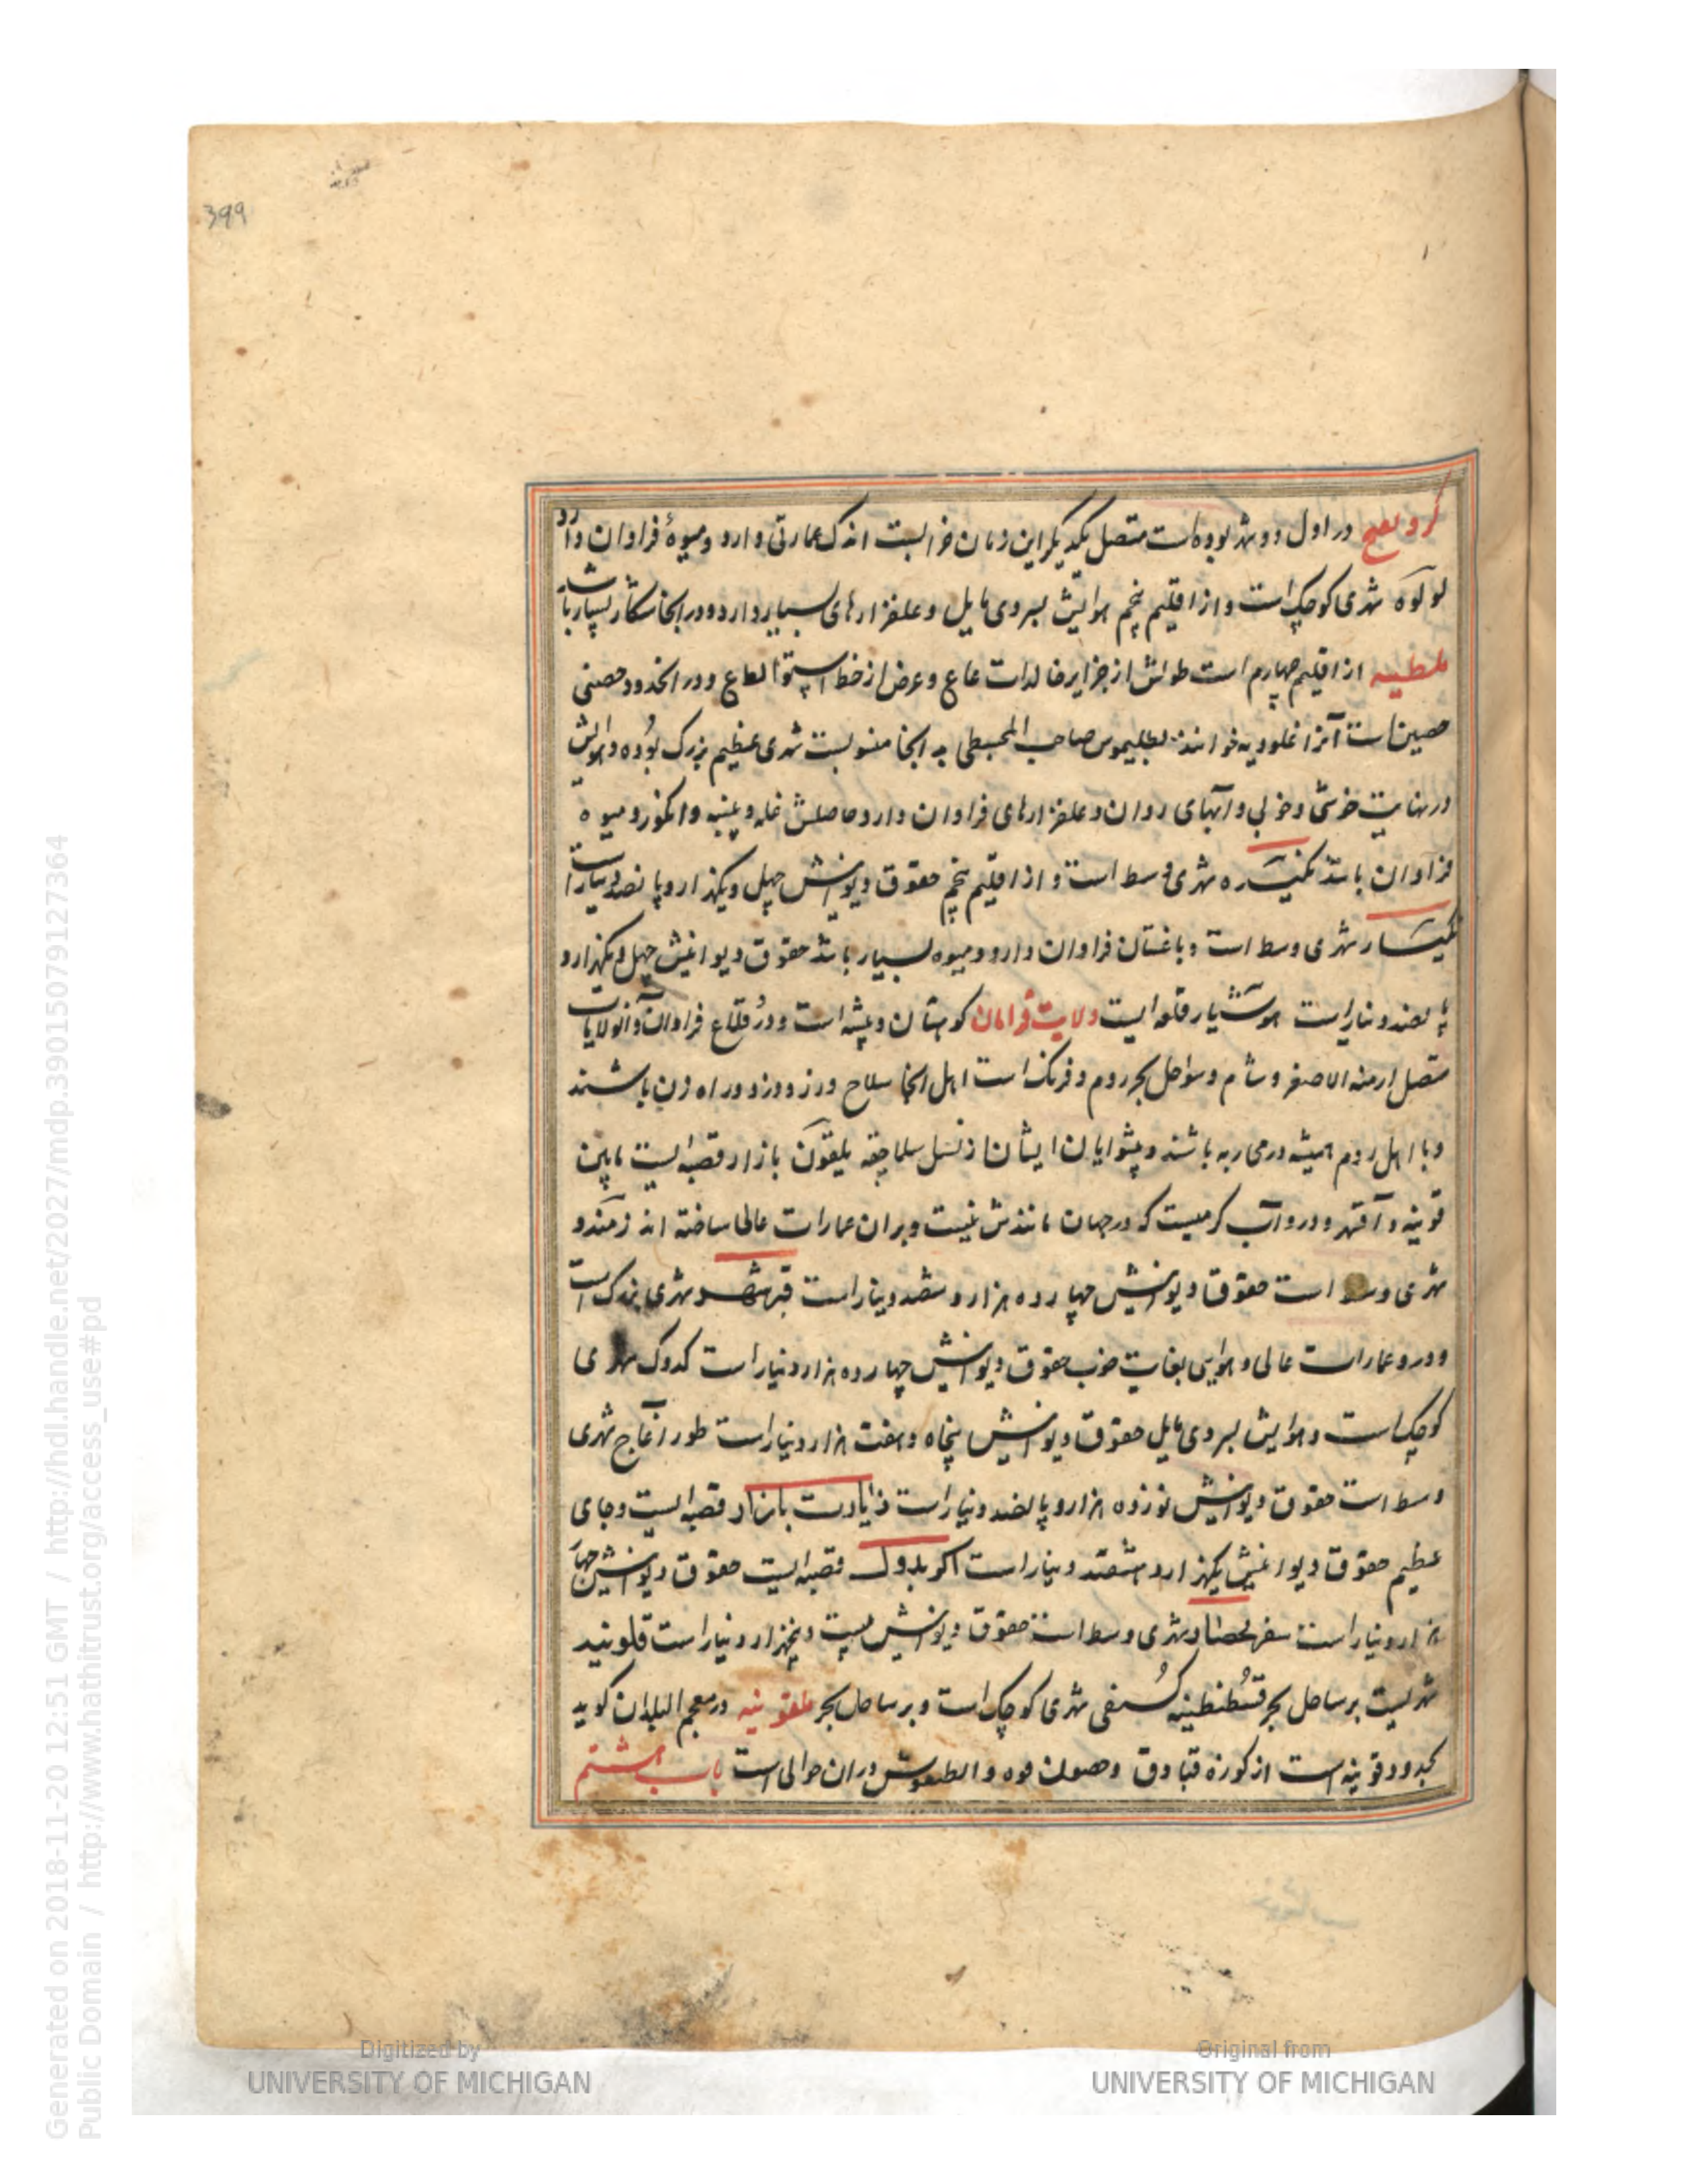 399
در اول دو شهر بوده است متصل یکدیگر این زمان خرابست اندک عمارتی دارد و میوهٔ فراوان دارد
لولوه شهری کوچک است و از اقلیم پنجم هوایش بسردی مایل و علفزارهای بسیار دارد و در آنجا شکار بسیار باشد
ملطیه از اقلیم چهارم است طولش از جزایر خالدات عاع و عرض از خط استوا لطاع و در انحدود حصنی
حصین است آنرا غلودیه خوانند بطلیموس صاحب المجسطی به آنجا منسوبست شهری عظیم بزرک بوده و هوایش
در نهایت خوشی و خوبی و آبهای روان و علفزارهای فراوان دارد حاصلش غله و پنبه و انکور و میوه
فراوان باشد شهری وسط است و از اقلیم پنجم حقوق دیوانیش چهل و یکهزار و پانصد دینار است
شهری وسط است و باغستان فراوان دارد و میوه بسیار باشد حقوق دیوانیش چهل و یکهزار و
پانصد دینار است هوشیار قلعه ایست ولایت قرامان کوهستان و بیشه است و در قلاع فراوان و آن ولایات
متصل ارمنه الاصغر و شام و سواحل بحر روم و فرنک است اهل آنجا سلاح ورز و دزد و راه زن باشند
و با اهل روم همیشه در محاربه باشند و پیشوایان ایشان از نسل سلاجقه یلقون بازار قصبه ایست مابین
قونیه و آقشهر و درو آب کرمیست که در جهان مانندش نیست و بران عمارات عالی ساخته اند زمندو
شهری وسط است حقوق دیوانیش چهارده هزار و ششصد دینار است قیرشهر شهری بزرک است
و درو عمارات عالی و هوایی بغایت خوب حقوق دیوانیش چهارده هزار دینار است کدوک شهری
کوچک است و هوایش بسردی مایل حقوق دیوانیش پنجاه و هفت هزار دینار است طور اغاج شهری
وسط است حقوق دیوانیش نوزده هزار و پانصد دینار است زیادت بازار قصبه ایست و جای
عظیم حقوق دیوانیش یکهزار و هشتصد دینار است قصبه ایست حقوق دیوانیش چهار
هزار دینار است سفرحصار شهری وسط است حقوق دیوانیش بیست و پنجهزار دینار است
شهریست بر ساحل بحر قسطنطینیه شهری کوچک است و بر ساحل بحر ملقونیه در معجم البلدان کوید
بحدود قونیه است از کوره قبادق و حصون دران حوالی است باب هشتم
Digitized by
UNIVERSITY OF MICHIGAN
Original from
UNIVERSITY OF MICHIGAN
Generated on 2018-11-20 12:51 GMT / http://hdl.handle.net/2027/mdp.39015079127364
Public Domain / http://www.hathitrust.org/access_use#pd